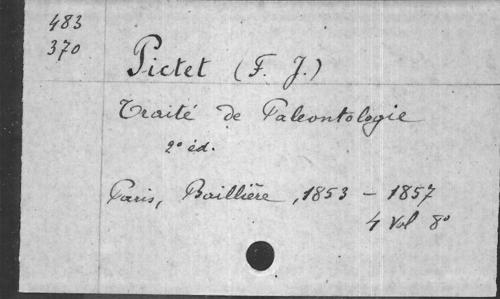 483
370
Pictet (F. J.)
Traité de Paleontologie
2º éd.
Paris, Baillière, 1853 - 1857
4 Vol 8º